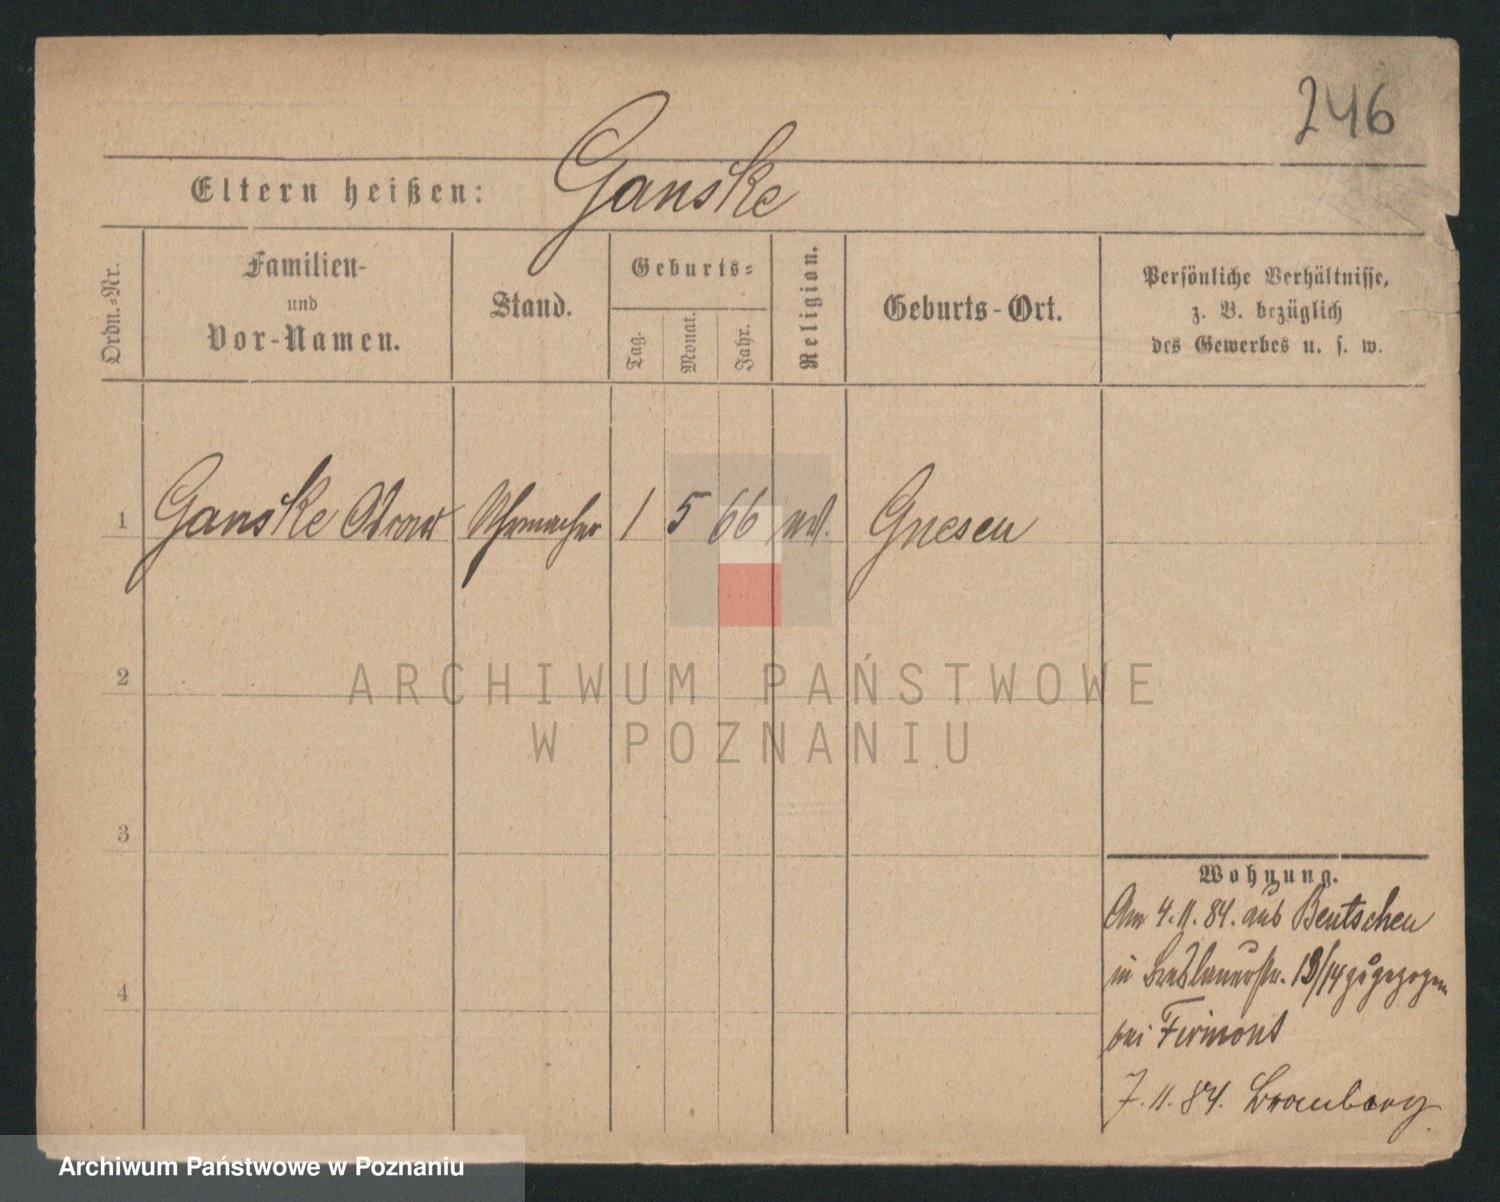 246
Eltern heißen: Ganske
Ordn.-Nr.
Familien-
und
Vor-Namen.
Stand.
Geburts-
Tag.
Monat.
Jahr.
Religion.
Geburts-Ort.
Persönliche Verhältnisse,
z. B. bezüglich
des Gewerbes u. s. w.
1 Ganske Uhrmacher 1 5 66 Gnesen
2
3
4
ARCHIWUM PAŃSTWOWE
W POZNANIU
Wohnung.
Am 4.11.84. aus Bentschen
in Breslauerstr. 13/14 zugezogen
bei Firmont
7.11.84. Bromberg
Archiwum Państwowe w Poznaniu